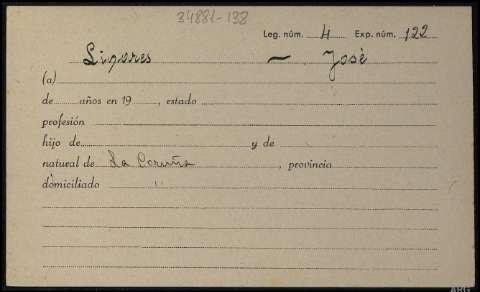 34881-138
Leg. núm. 4 Exp. núm. 122
Linares — José
(a)
de años en 19 , estado
profesión
hijo de y de
natural de La Coruña , provincia
domiciliado "
ARG